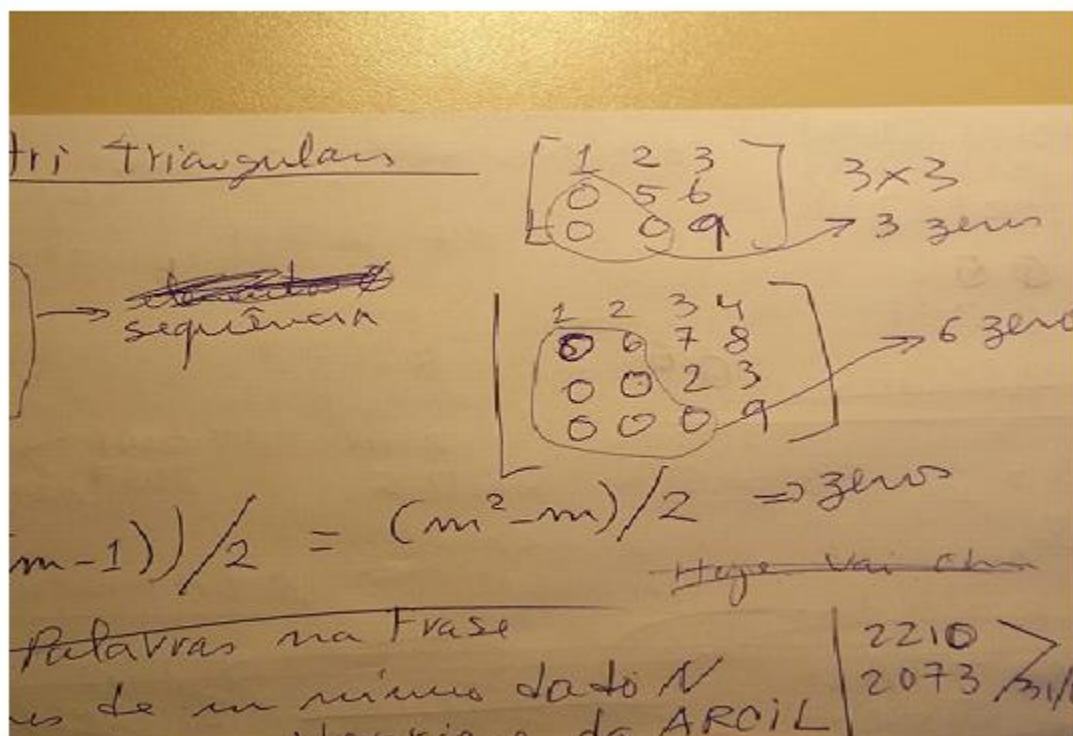 tri Triangulares
1 2 3
0 5 6
0 0 9
3x3
→ 3 zeros
→ sequência
1 2 3 4
0 6 7 8
0 0 2 3
0 0 0 9
→ 6 zero
m-1))/2 = (m²-m)/2 => zeros
Hoje Vai
Palavras na Frase
de um número dado N
da AROiL
2210
2073